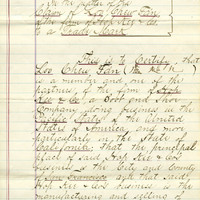 In the matter of the
Claim of Loo Chew Fan,
of the firm of Hop Kee & Co.
to a Trade Mark
This is to Certify, that
Loo Chew Fan
is a member and one of the
partners, of the firm of Hop
Kee & Co. a Boot and Shoe
Company doing business in the
Pacific States of the United
States of America, and more
particularly in the State of
California: That the principal
place of said Hop Kee & Co's
business is the City and County
of San Francisco and that said
Hop Kee & Co's business is the
manufacturing and selling of